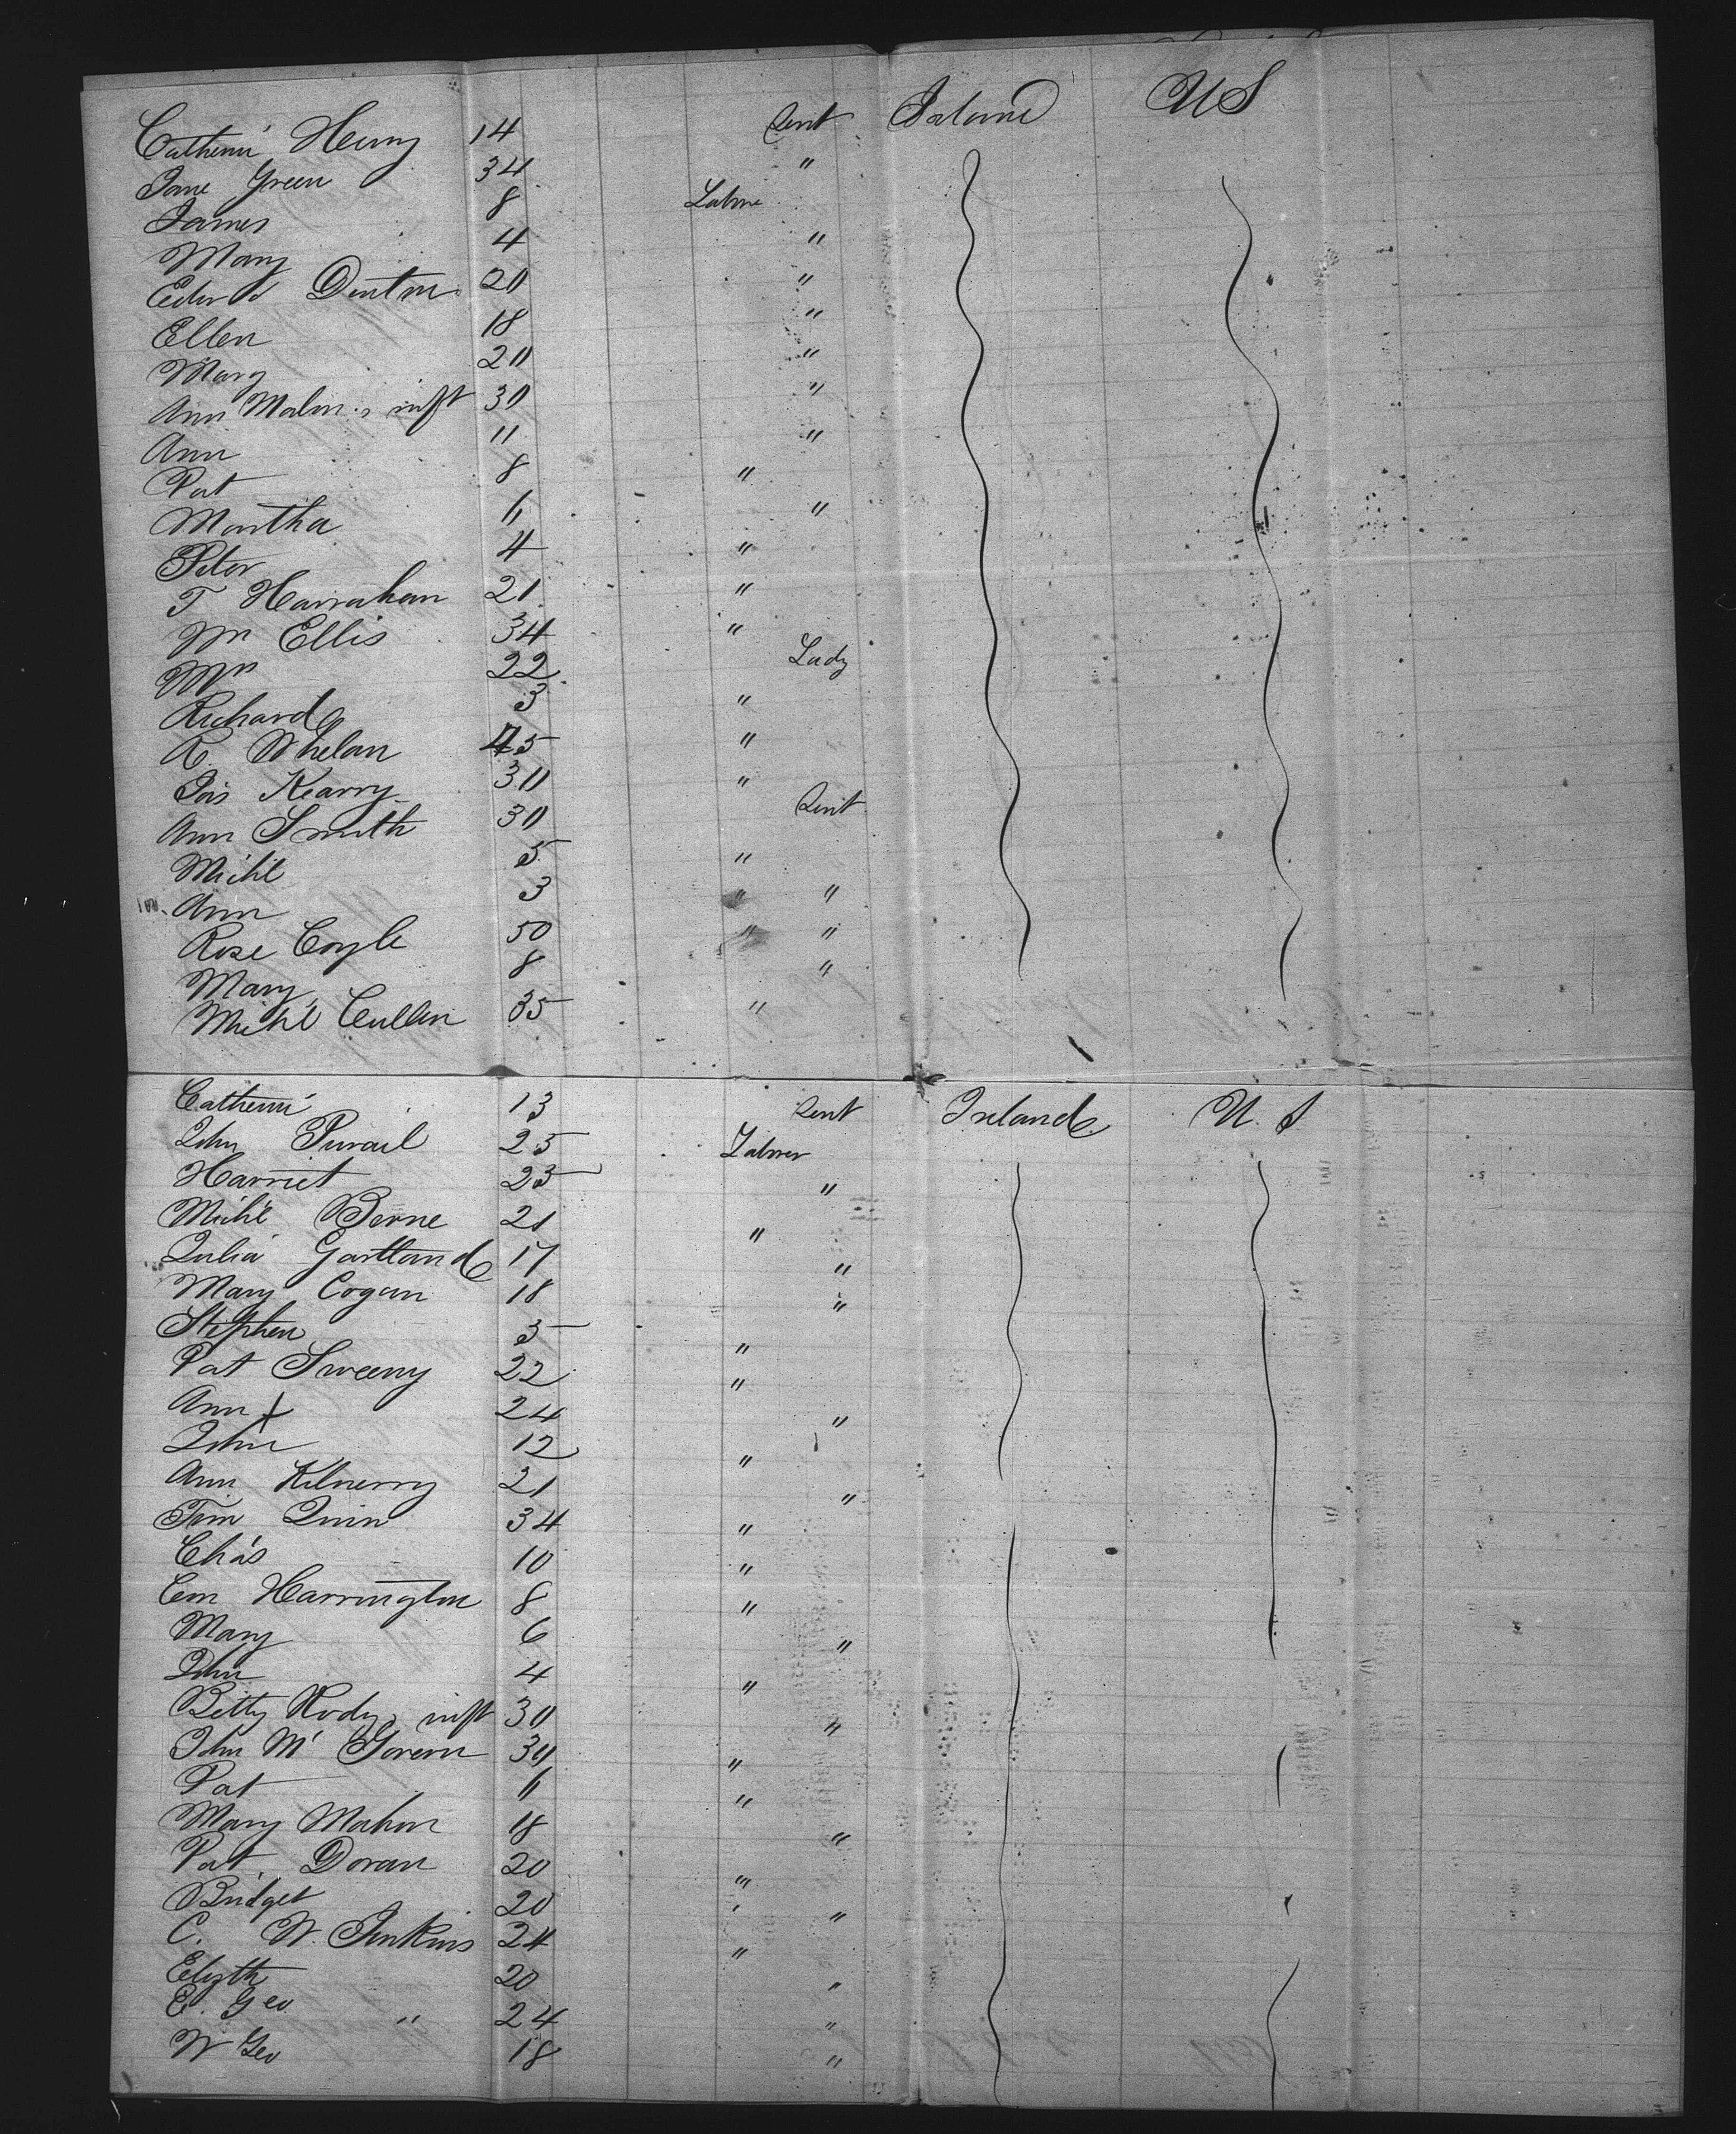 Catherin Henry 14 Servt Ireland U S
Jane Green 34 "
James 8 Labour
Mary 4 "
Edwd Denton 20 "
Ellen 18 "
Mary 20 "
Ann Malon, inft 30 "
Ann 11 "
Pat 8 "
Martha 6 "
Peter 4 "
T Hanrahan 21 "
Mr Ellis 34 "
Mrs 22 Lady
Richard 3 "
R. Whelan 45 "
Jas Kearny 30 "
Ann Smith 30 Servt
Michl 5 "
Ann 3 " "
Rose Coyle 50 " "
Mary 8 "
Michl Cullen 35 "
Catherin 13 Servt Ireland U. S
John 25 Labour
Harriet 25 "
Michl Berne 21 "
Julia Gartland 17 "
Mary Cogan 18 "
Stephen 5 "
Pat Sweeny 22 "
Ann X 24 "
John 12 "
Ann Kilnerry 21 "
Tim Quin 34 "
Chas 10 "
Em Harrington 8 "
Mary 6 "
John 4 "
Betty inft 30 "
John Mc Govern 30 "
Pat 6 "
Mary Mahon 18 "
Pat. Doran 20 "
Bridget 20 "
C. W. Jenkins 24 "
Elizth 20 "
E. Geo " 24 "
W Geo 18 "